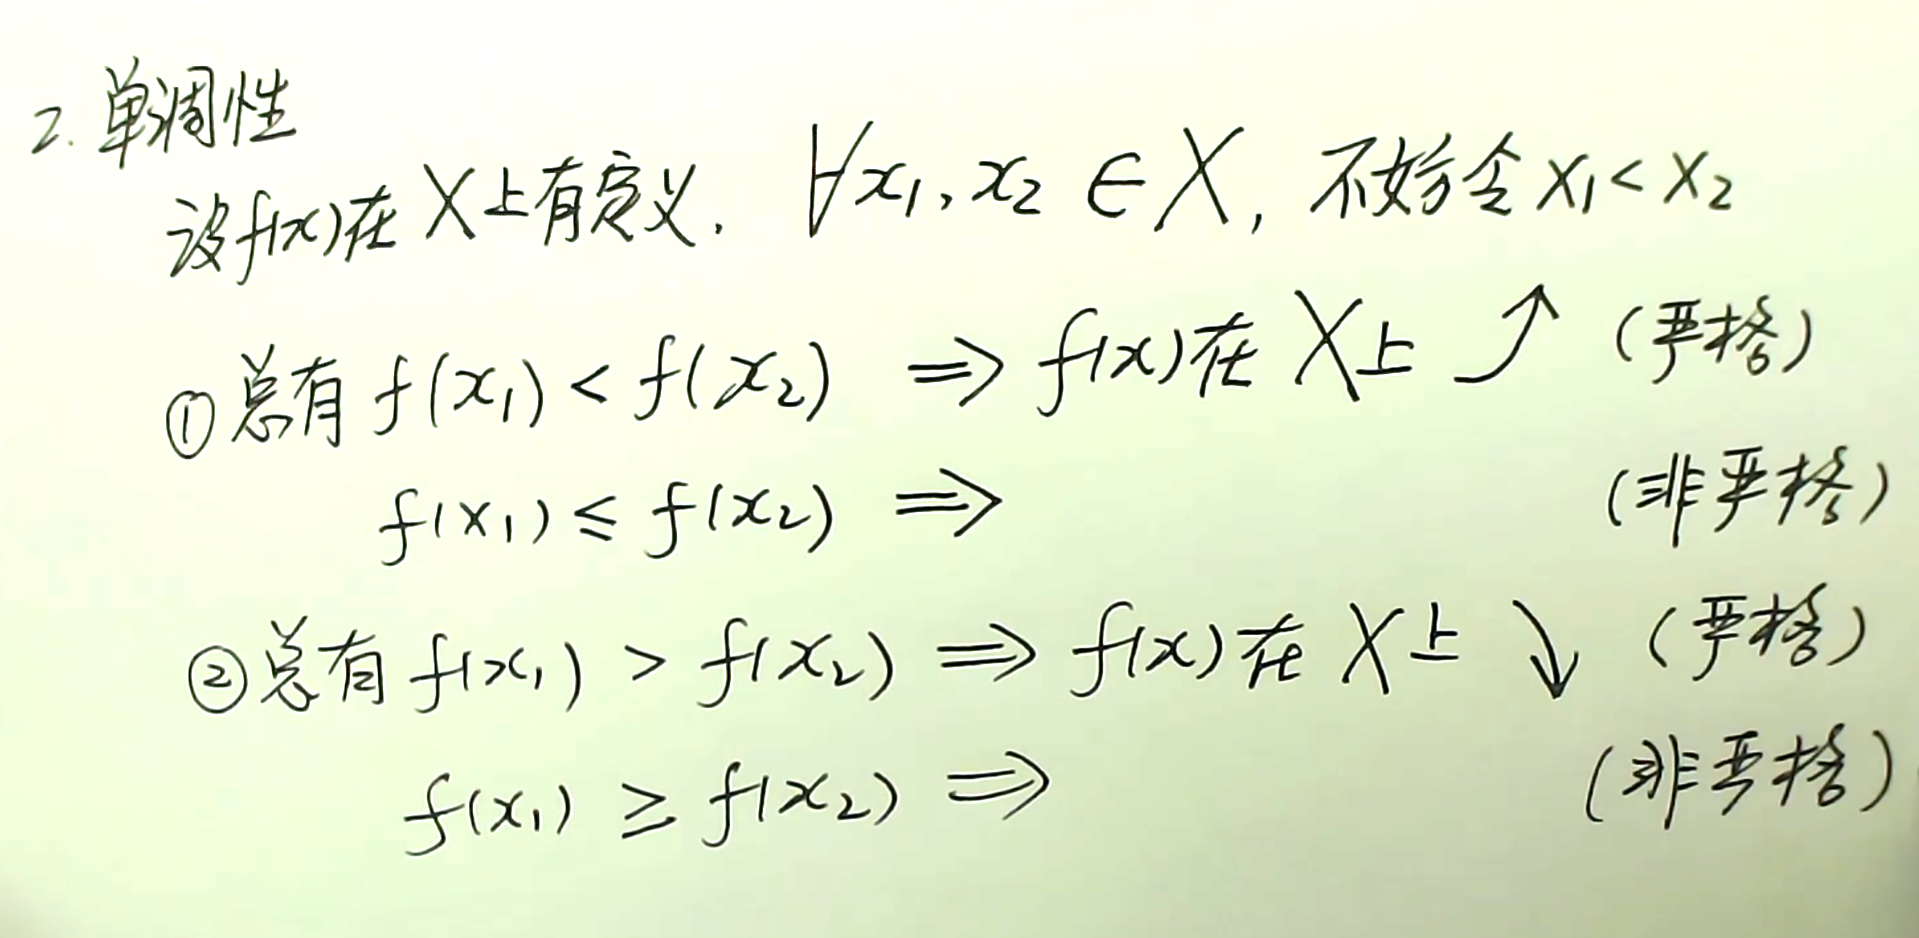 2. 单调性
设f(x)在X上有定义. ∀x₁,x₂∈X, 不妨令x₁<x₂
①总有f(x₁)<f(x₂) ⇒ f(x)在X上↗ (严格)
f(x₁)≤f(x₂) ⇒ (非严格)
②总有f(x₁)>f(x₂) ⇒ f(x)在X上↘ (严格)
f(x₁)≥f(x₂) ⇒ (非严格)